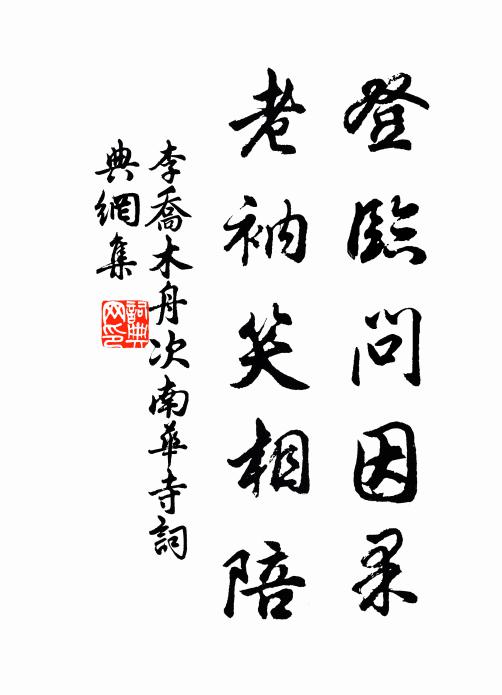 登臨問因果
老衲笑相陪
李喬木舟次南華寺詞
典網集
詞典網印